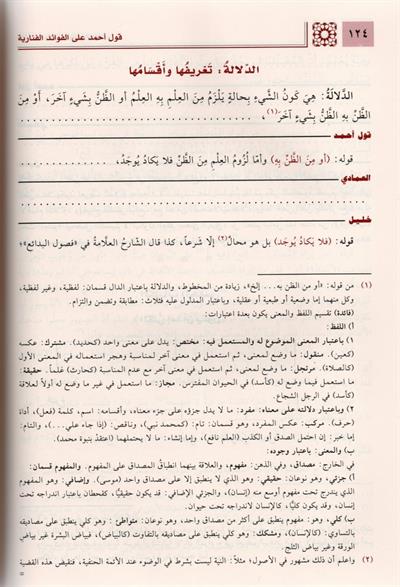 ١٢٤
قول أحمد على الفوائد الفنارية
الدلالةُ: تَعْرِيفُها وأَقْسَامُها
الدَّلالةُ: هِيَ كَونُ الشَّيءِ بِحالةٍ يَلْزَمُ مِنَ العِلْمِ بِهِ العِلْمُ أو الظَّنُّ بِشَيءٍ آخَرَ، أوْ مِنَ
الظَّنِّ بِهِ الظَّنُّ بِشَيءٍ آخَرَ(١)،
قول أحمد
قوله: (أو مِنَ الظَّنِّ بِهِ) وأمّا لُزُومُ العِلْمِ مِنَ الظَّنِّ فلا يَكادُ يُوجَدُ،
العمادي
خليل
قوله: (فلا يَكادُ يُوجَد) بل هو محالٌ(٢) إلّا شَرعاً، كذا قال الشّارحُ العلّامةُ في «فصول البدائع»؛
(١) من قوله: «أو من الظن به... إلخ»، زيادة من المخطوط، والدلالة باعتبار الدال قسمان: لفظية، وغير لفظية،
وكل منهما إما وضعية أو طبعية أو عقلية، وباعتبار المدلول عليه فثلاث: مطابقة وتضمن والتزام.
(فائدة) تقسيم اللفظ والمعنى يكون بعدة اعتبارات:
أ) اللفظ:
١) باعتبار المعنى الموضوع له والمستعمل فيه: مختص: يدل على معنى واحد (كحديد). مشترك: عكسه
(كعين). منقول: ما وضع لمعنى، ثم استعمل في معنى آخر لمناسبة وهجر استعماله في المعنى الأول
(كالصلاة). مرتجل: ما وضع لمعنى، ثم استعمل في معنى آخر مع عدم المناسبة (كحارث) علماً. حقيقة:
ما استعمل فيما وضع له (كأسد) في الحيوان المفترس. مجاز: ما استعمل في غير ما وضع له أولاً لعلاقة
(كأسد) في الرجل الشجاع.
٢) وباعتبار دلالته على معناه: مفرد: ما لا يدل جزؤه على جزء معناه، وأقسامه: اسم، كلمة (فعل)، أداة
(حرف). مركب: عكس المفرد، وهو قسمان: تام: (كمحمد نبي)، وناقص: (إذا جاء علي...)، والتام:
إما خبر: إن احتمل الصدق أو الكذب (العلم نافع)، وإما إنشاء: ما لا يحتملهما (اعتقدْ بنبوة محمد).
ب) والمعنى: باعتبار وجوده:
في الخارج: مصداق، وفي الذهن: مفهوم، والعلاقة بينهما انطباقُ المصداق على المفهوم. والمفهوم قسمان:
أ) جزئي، وهو نوعان: حقيقي: وهو الذي لا ينطبق إلا على مصداق واحد (موسى). وإضافي: وهو المفهوم
الذي يندرج تحت مفهوم أوسع منه (إنسان)، والجزئي الإضافي: قد يكون حقيقيًّا، كقحطان باعتبار اندراجه تحت
إنسان، وقد يكون كليًّا، كالإنسان باعتبار اندراجه تحت حيوان.
ب) كلي، وهو: المفهوم الذي ينطبق على أكثر من مصداق واحد، وهو نوعان: متواطئ: وهو كلي ينطبق على مصاديقه
بالتساوي (كالإنسان)، ومشكك: وهو كلي ينطبق على مصاديقه بالتفاوت (كالبياض)، فبياض البشرة غير بياض
الورقة وغير بياض الثلج.
(٢) واعلم أن ذلك مشهور في الأصول؛ مثلاً: النية ليست بشرط في الوضوء عند الأئمة الحنفية، فنقيض هذه القضية